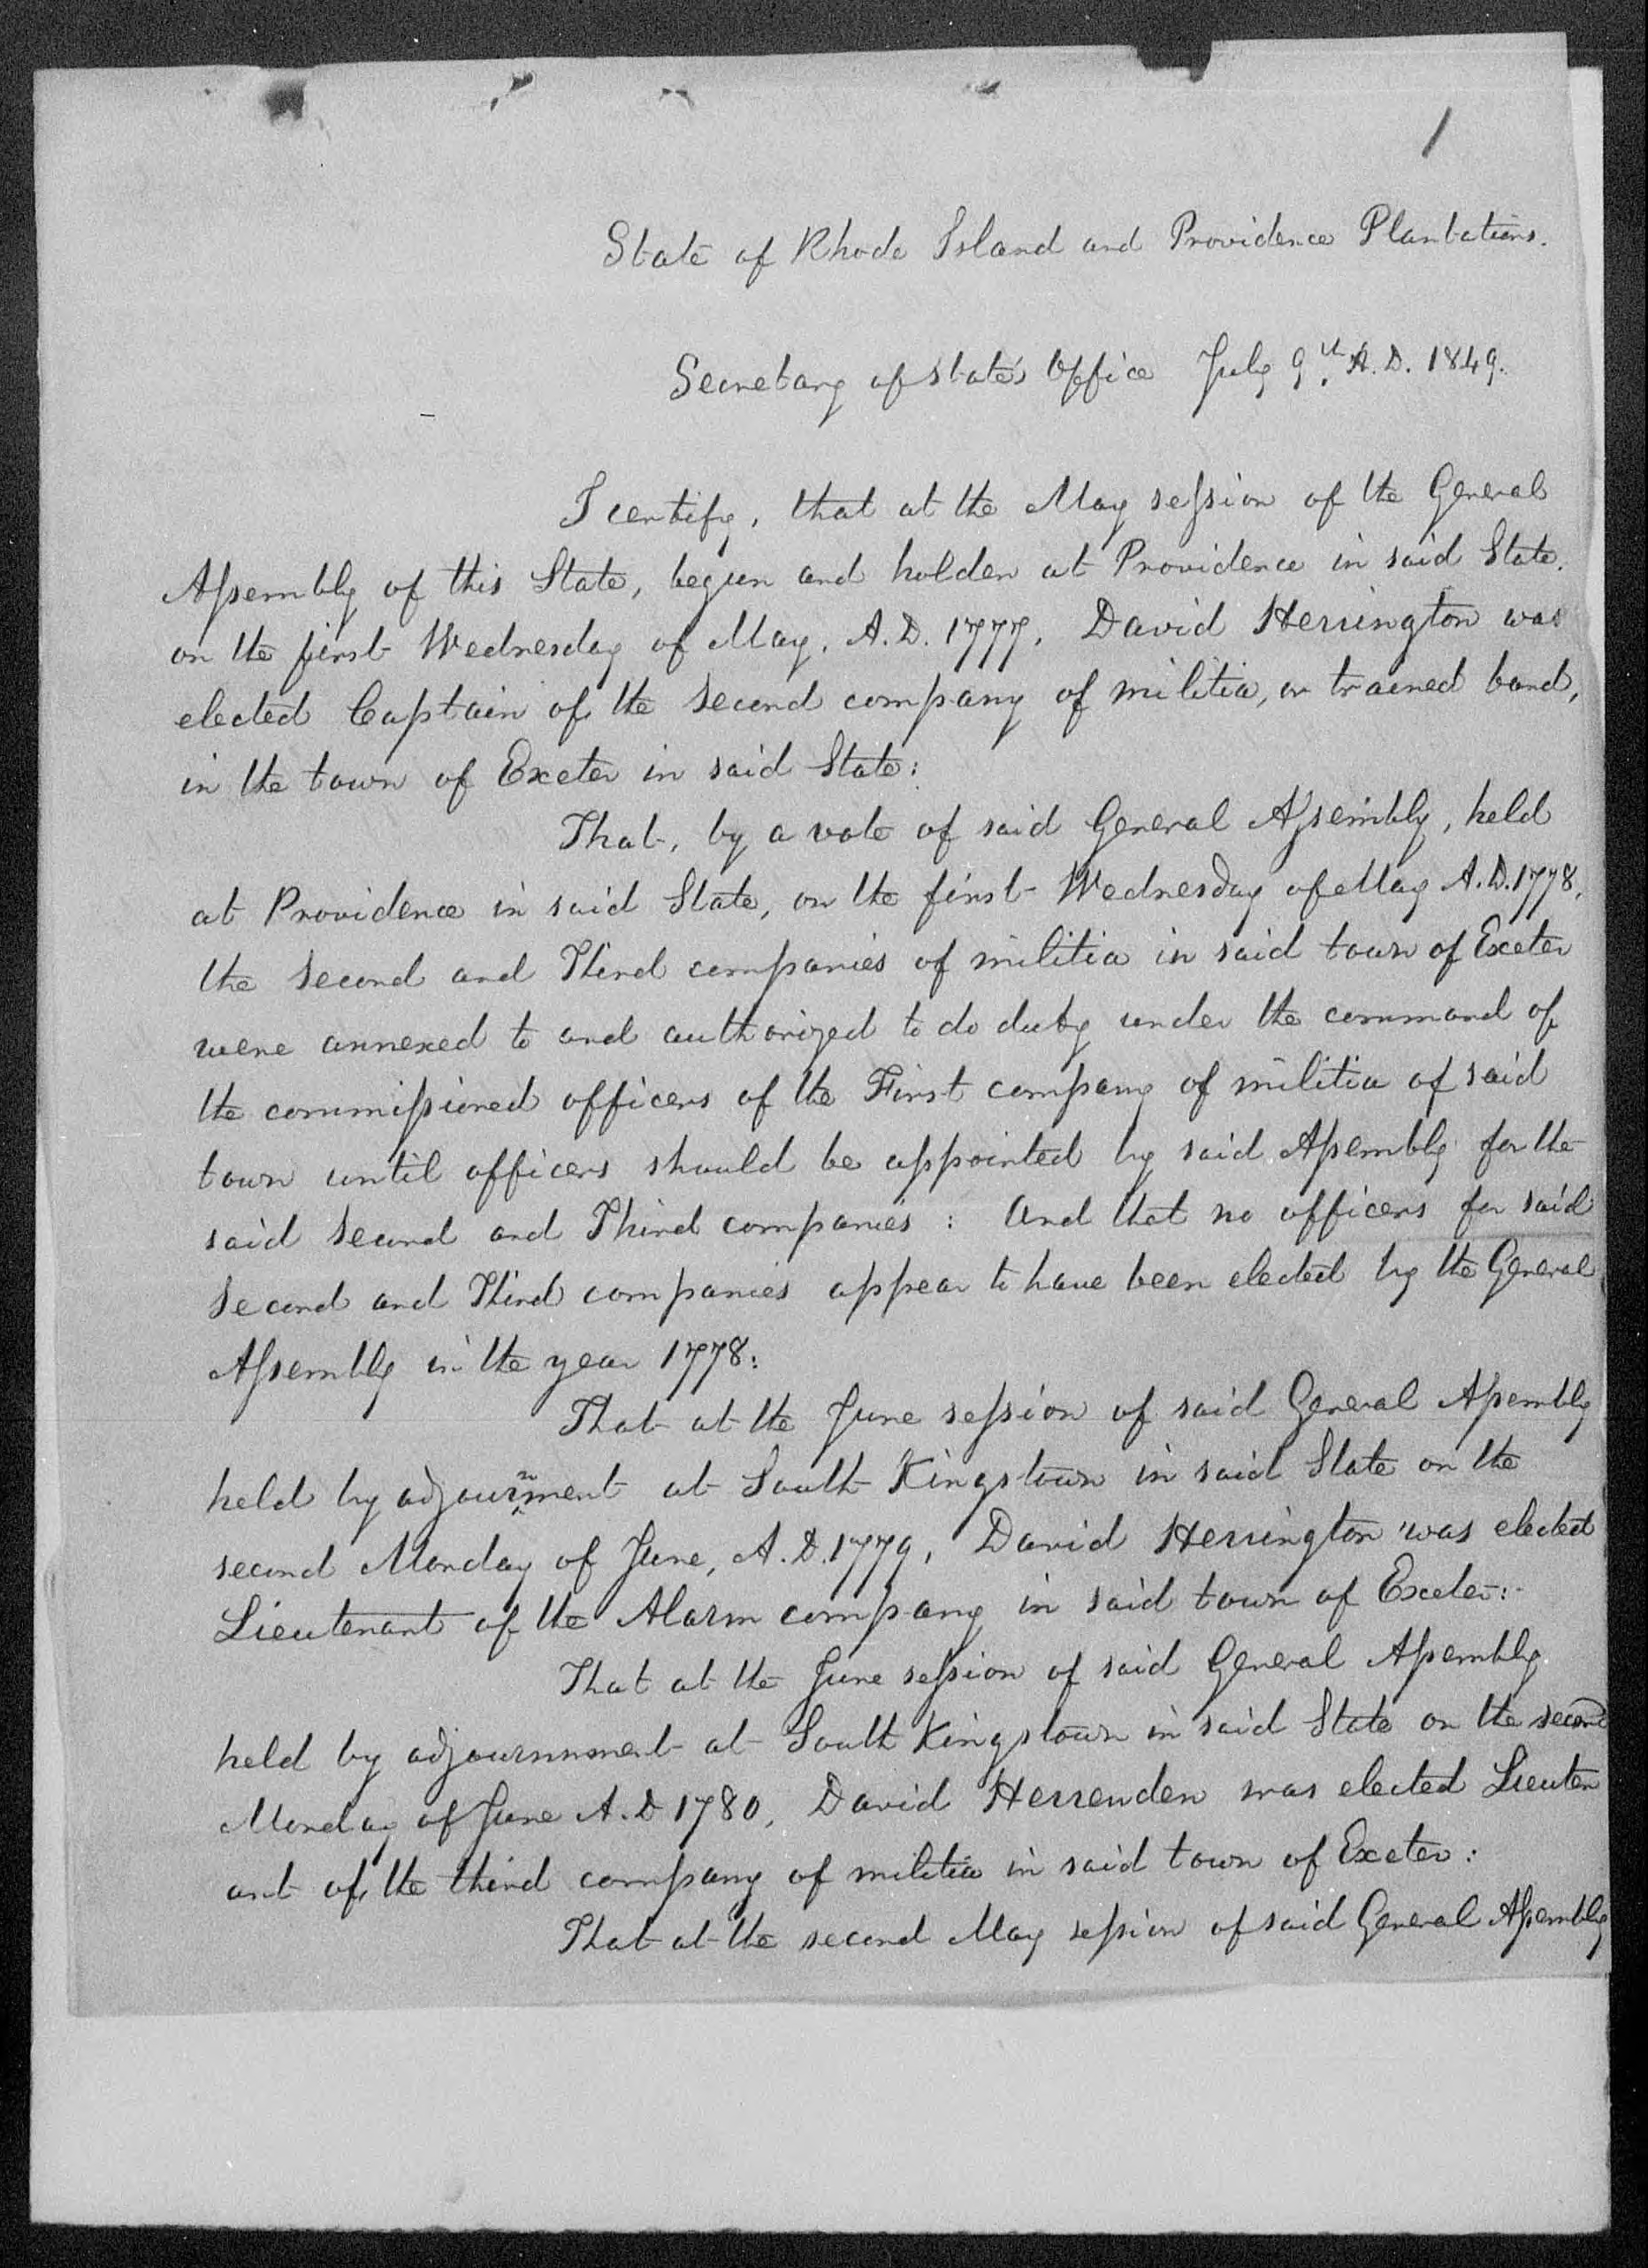 1
State of Rhode Island and Providence Plantations.
Secretary of State's Office July 9th A.D. 1849.
I certify, that at the May session of the General
Assembly of this State, begun and holden at Providence in said State,
on the first Wednesday of May, A.D. 1777, David Herrington was
elected Captain of the Second company of militia, or trained band,
in the town of Exeter in said State:
That, by a vote of said General Assembly, held
at Providence in said State, on the first Wednesday of May A.D. 1778,
the Second and Third companies of militia in said town of Exeter
were annexed to and authorized to do duty under the command of
the commissioned officers of the First company of militia of said
town until officers should be appointed by said Assembly for the
said Second and Third companies: And that no officers for said
Second and Third companies appear to have been elected by the General
Assembly in the year 1778:
That at the June session of said General Assembly
held by adjournment at South Kingstown in said State on the
second Monday of June, A.D. 1779, David Herrington was elected
Lieutenant of the Alarm company in said town of Exeter:
That at the June session of said General Assembly
held by adjournment at South Kingstown in said State on the second
Monday of June A.D 1780, David Herrenden was elected Lieuten
ant of the third company of militia in said town of Exeter:
That at the second May session of said General Assembly